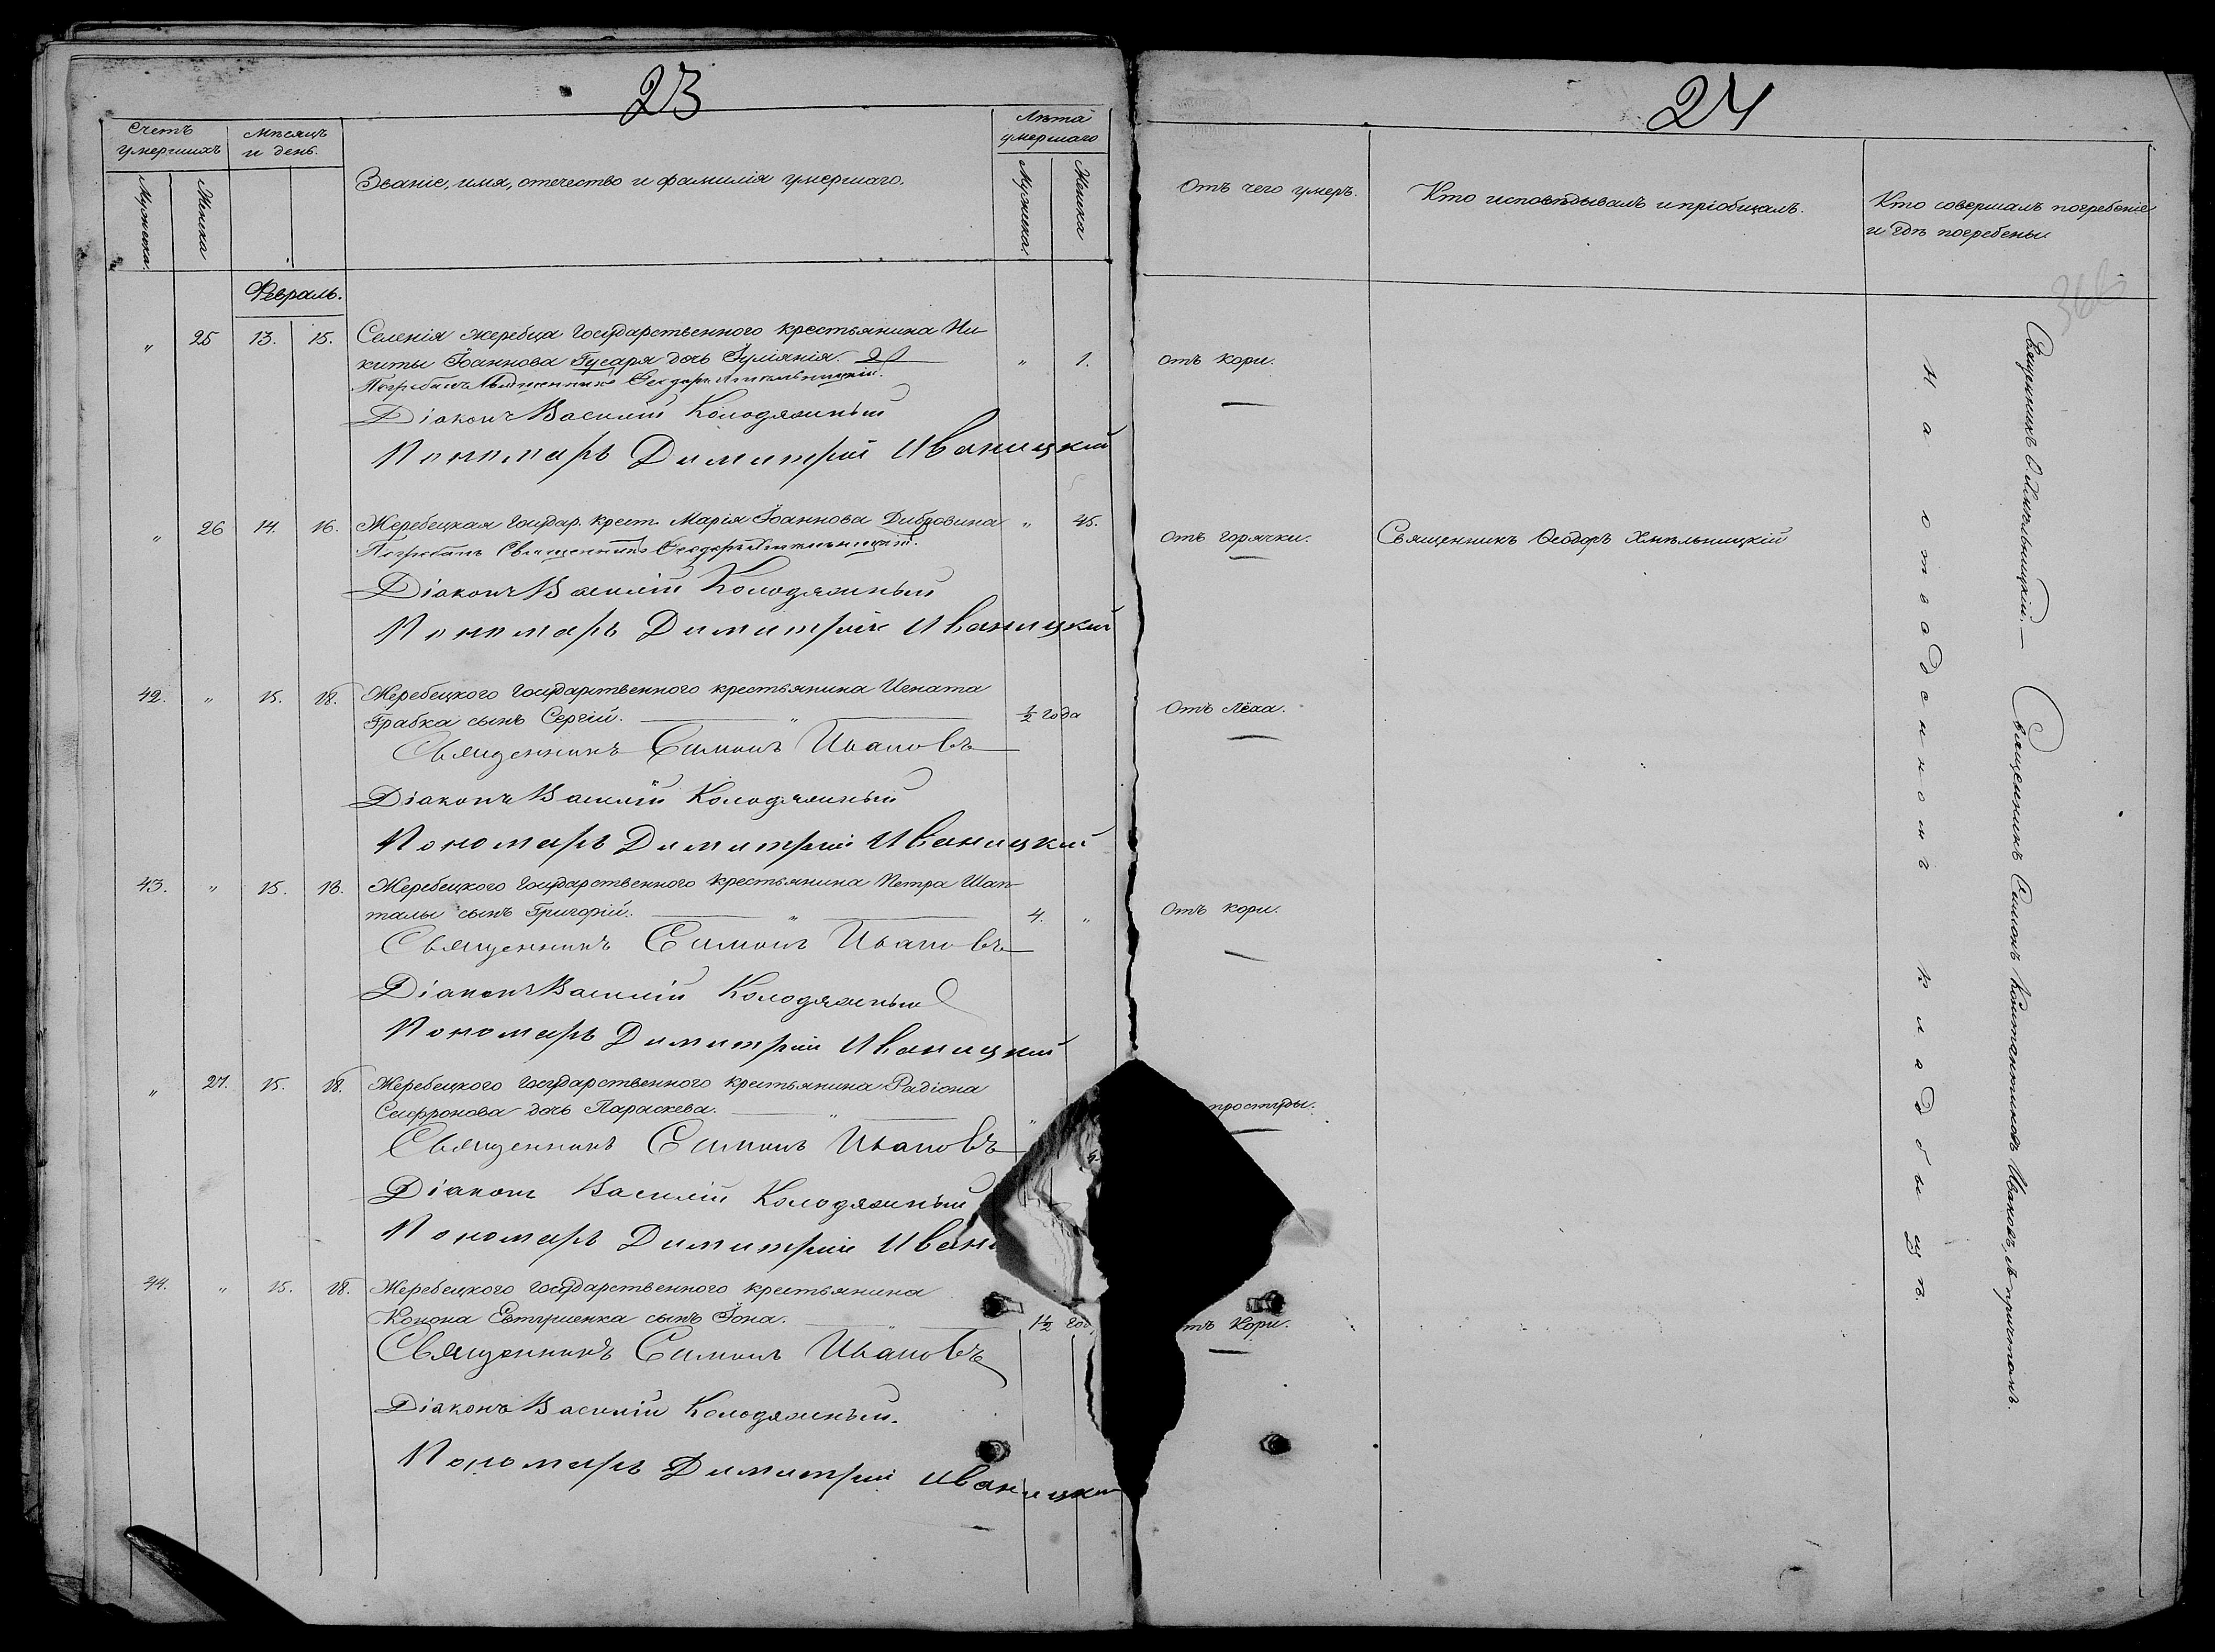 23
Счетъ умершихъ
Мѣсяцъ и день.
Званіе, имя, отечество и фамилія умершаго.
Лѣта умершаго
Мужеска.
Женска
Мужеска
Женска
Февраль.
" 25 13. 15. Селенія Жеребца Государственного крестьянина Ни-
киты Іоаннова Гусаря дочь Іуліанія. " 1.
Погребалъ Священникъ Ѳеодоръ Хмѣльницкій.
Діаконъ Василій Колодяжный
Пономарь Димитрій Иваницкій
" 26 14. 16. Жеребецкая государ. крест. Марія Іоаннова Дибровина " 45.
Погребалъ Священникъ Ѳеодоръ Хмѣльницкій.
Діаконъ Василій Колодяжный
Пономарь Димитрій Иваницкій
42. " 15. 18. Жеребецкого Государственного крестьянина Игната
Грабка сынъ Сергій. " ½ года
Священникъ Симонъ Ивановъ
Діаконъ Василій Колодяжный
Пономарь Димитрій Иваницкій
43. " 15. 18. Жеребецкого Государственного крестьянина Петра Шап-
талы сынъ Григорій. " 4. "
Священникъ Симонъ Ивановъ
Діаконъ Василій Колодяжный
Пономарь Димитрій Иваницкій
" 27. 15. 18. Жеребецкого Государственного крестьянина Радіона
Сафронова дочь Параскева. " "
Священникъ Симонъ Ивановъ
Діаконъ Василій Колодяжный
Пономарь Димитрій Ивани
44. " 15. 18. Жеребецкого Государственного крестьянина
Конона Евтушенка сынъ Іона. " 1½ год
Священникъ Симонъ Ивановъ
Діаконъ Василій Колодяжный.
Пономарь Димитрій Иваницкій
24
Отъ чего умеръ.
Кто исповѣдывалъ и пріобщалъ.
Кто совершалъ погребеніе
и гдѣ погребены.
отъ кори.
отъ горячки.
Священникъ Ѳеодоръ Хмѣльницкій
Отъ лёха.
Отъ кори.
простуды.
тъ кори.
На отведенномъ кладбищѣ.
Священникъ Ѳ. Хмѣльницкій. — Священникъ Симонъ Константиновъ Ивановъ, съ причтомъ.